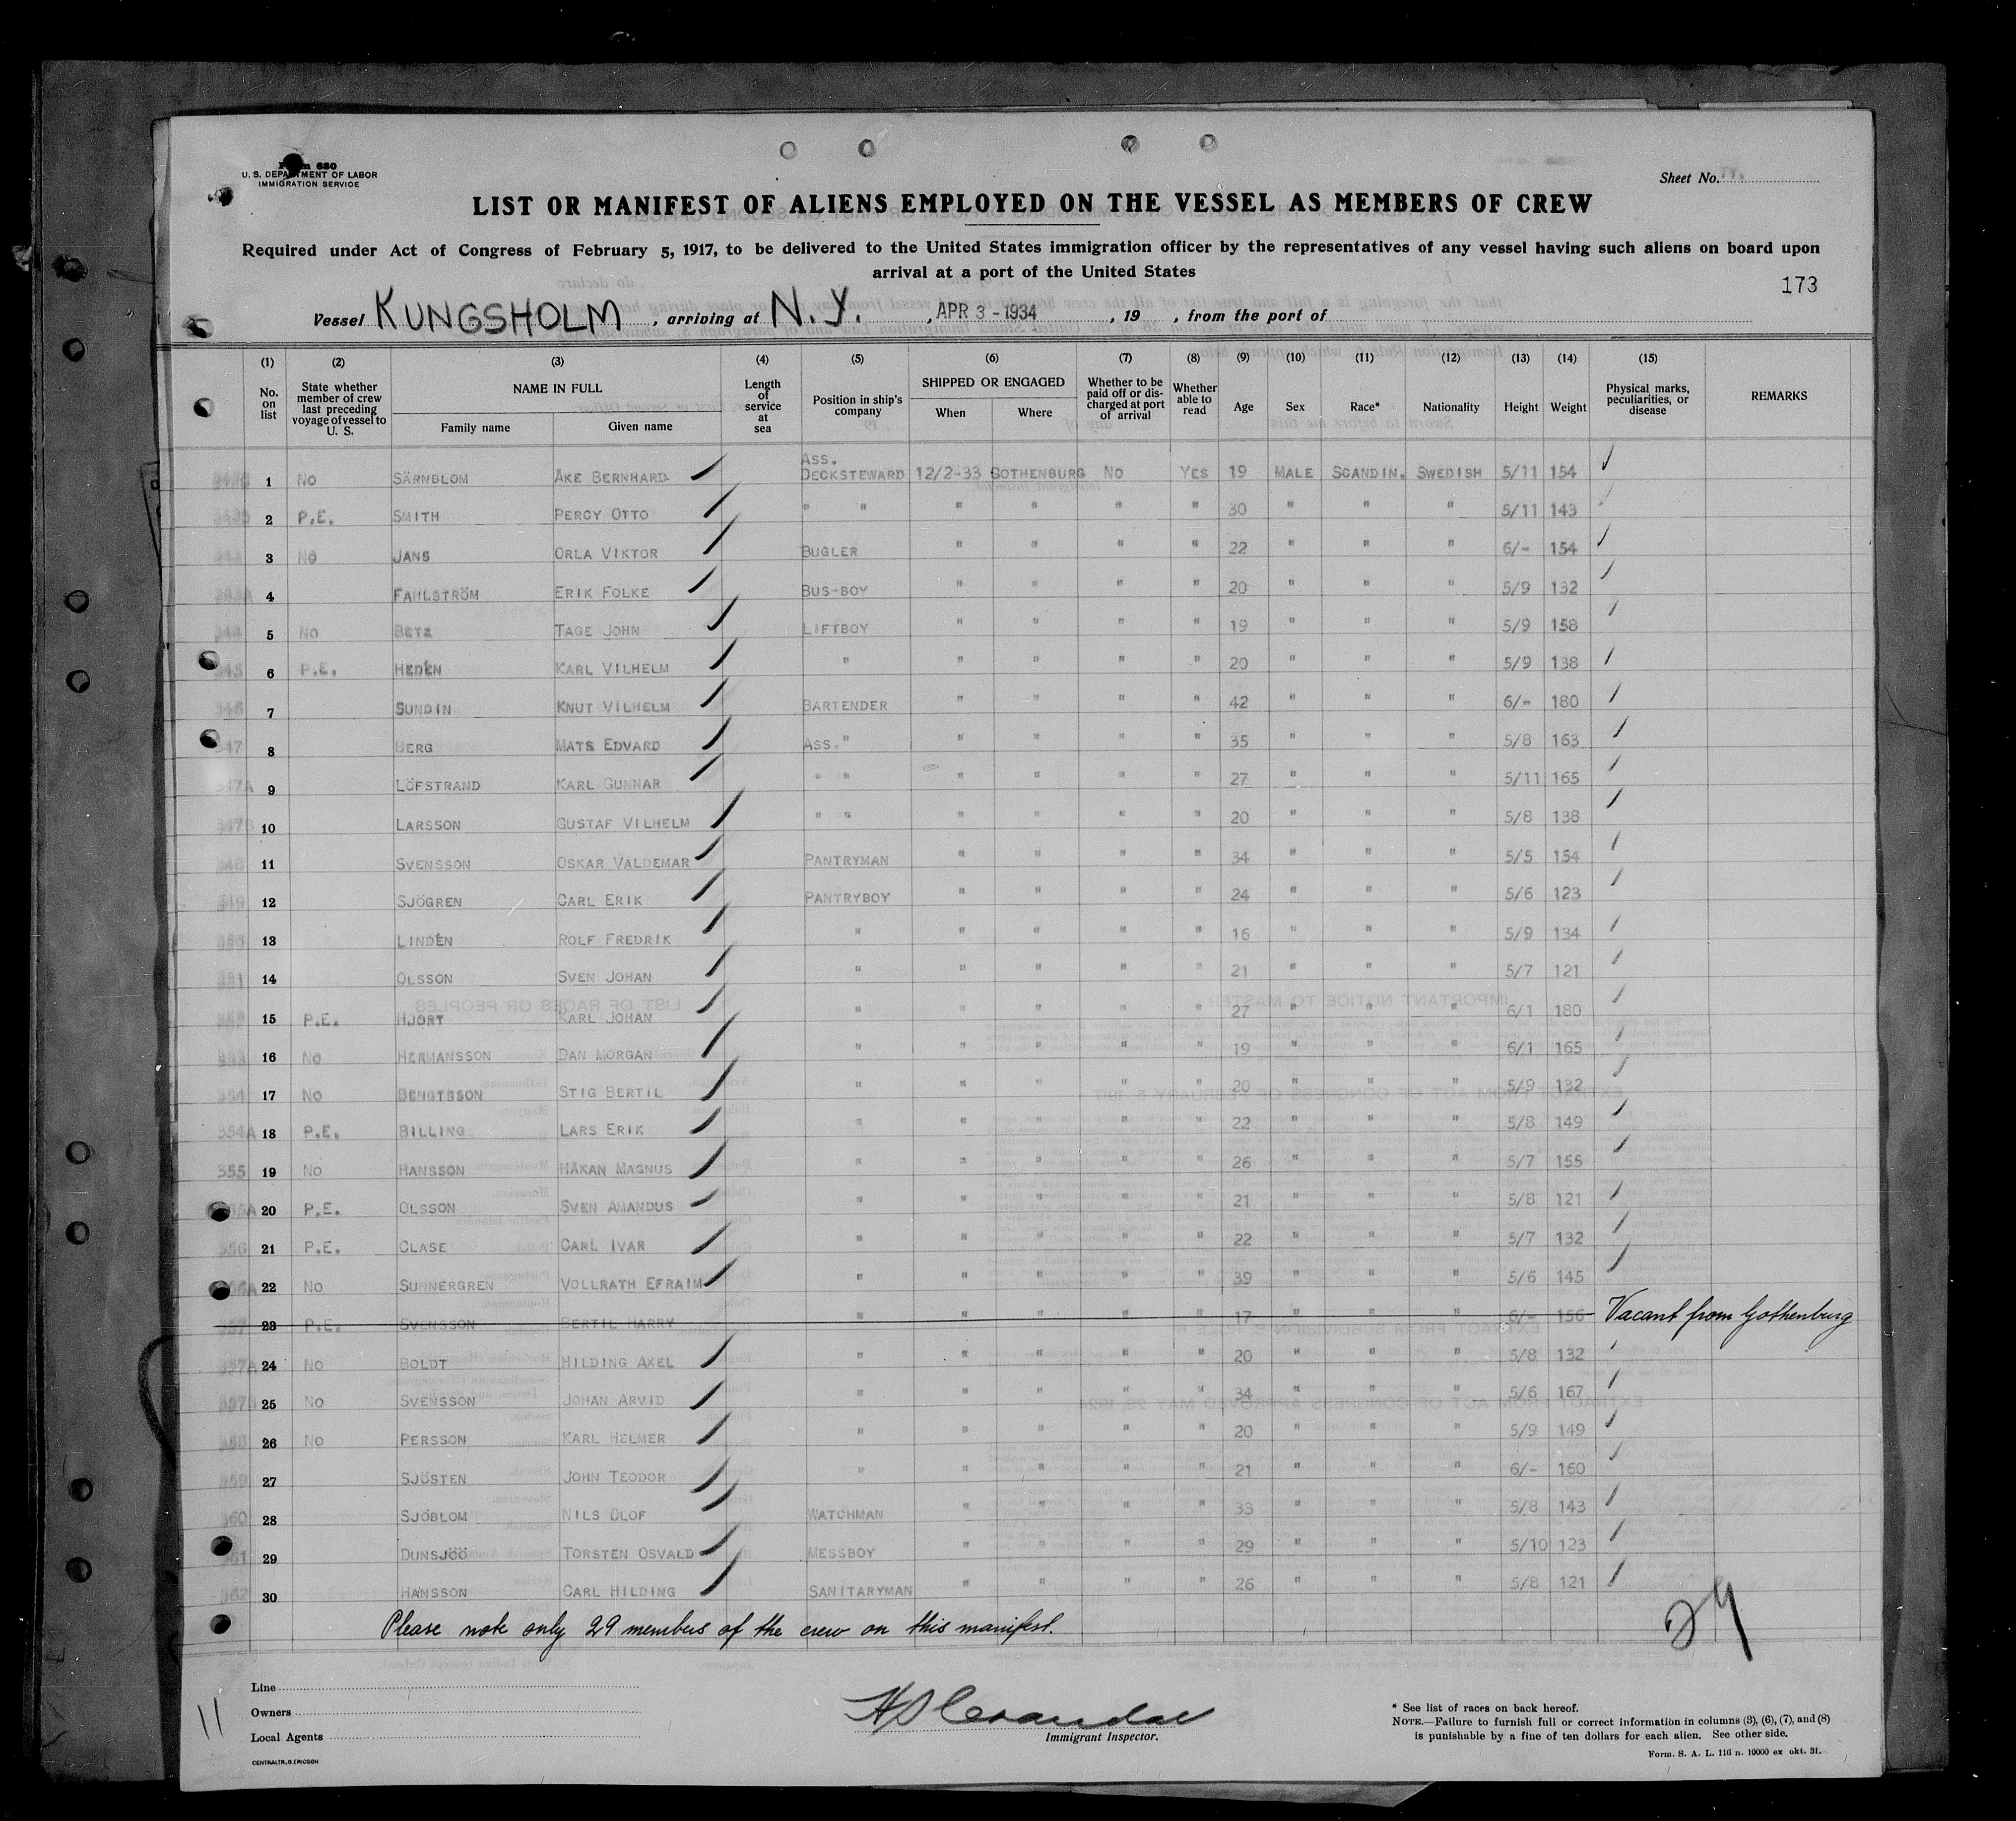 Form 680
U. S. DEPARTMENT OF LABOR
IMMIGRATION SERVICE
Sheet No.
LIST OR MANIFEST OF ALIENS EMPLOYED ON THE VESSEL AS MEMBERS OF CREW
Required under Act of Congress of February 5, 1917, to be delivered to the United States immigration officer by the representatives of any vessel having such aliens on board upon
arrival at a port of the United States
173
Vessel KUNGSHOLM, arriving at N.Y., APR 3 - 1934, 19 , from the port of
(1) (2) (3) (4) (5) (6) (7) (8) (9) (10) (11) (12) (13) (14) (15)
No. on list State whether member of crew last preceding voyage of vessel to U. S. NAME IN FULL Family name Given name Length of service at sea Position in ship's company SHIPPED OR ENGAGED When Where Whether to be paid off or discharged at port of arrival Whether able to read Age Sex Race* Nationality Height Weight Physical marks, peculiarities, or disease REMARKS
1 NO SÄRNBLOM ÅKE BERNHARD ASS. DECKSTEWARD 12/2-33 GOTHENBURG NO YES 19 MALE SCANDIN. SWEDISH 5/11 154
2 P.E. SMITH PERCY OTTO " " " " " " 30 " " " 5/11 143
3 NO JANS ORLA VIKTOR BUGLER " " " " 22 " " " 6/- 154
4 FAHLSTRÖM ERIK FOLKE BUS-BOY " " " " 20 " " " 5/9 132
5 NO BETZ TAGE JOHN LIFTBOY " " " " 19 " " " 5/9 158
6 P.E. HEDÉN KARL VILHELM " " " " " 20 " " " 5/9 138
7 SUNDIN KNUT VILHELM BARTENDER " " " " 42 " " " 6/- 180
8 BERG MATS EDVARD ASS." " " " " 35 " " " 5/8 163
347A 9 LÖFSTRAND KARL GUNNAR " " " " " " 27 " " " 5/11 165
10 LARSSON GUSTAF VILHELM " " " " " " 20 " " " 5/8 138
11 SVENSSON OSKAR VALDEMAR PANTRYMAN " " " " 34 " " " 5/5 154
12 SJÖGREN CARL ERIK PANTRYBOY " " " " 24 " " " 5/6 123
13 LINDÉN ROLF FREDRIK " " " " " 16 " " " 5/9 134
14 OLSSON SVEN JOHAN " " " " " 21 " " " 5/7 121
15 P.E. HJORT KARL JOHAN " " " " " 27 " " " 6/1 180
16 NO HERMANSSON DAN MORGAN " " " " " 19 " " " 6/1 165
354 17 NO BENGTSSON STIG BERTIL " " " " " 20 " " " 5/9 132
354A 18 P.E. BILLING LARS ERIK " " " " " 22 " " " 5/8 149
355 19 NO HANSSON HÅKAN MAGNUS " " " " " 26 " " " 5/7 155
20 P.E. OLSSON SVEN AMANDUS " " " " " 21 " " " 5/8 121
356 21 P.E. CLASE CARL IVAR " " " " " 22 " " " 5/7 132
22 NO SUNNERGREN VOLLRATH EFRAIM " " " " " 39 " " " 5/6 145
357 23 P.E. SVENSSON BERTIL HARRY " " " " " 17 " " " 6/- 156 Vacant from Gothenburg
357A 24 NO BOLDT HILDING AXEL " " " " " 20 " " " 5/8 132
25 NO SVENSSON JOHAN ARVID " " " " " 34 " " " 5/6 167
26 NO PERSSON KARL HELMER " " " " " 20 " " " 5/9 149
359 27 SJÖSTEN JOHN TEODOR " " " " " 21 " " " 6/- 160
360 28 SJÖBLOM NILS OLOF WATCHMAN " " " " 33 " " " 5/8 143
29 DUNSJÖÖ TORSTEN OSVALD MESSBOY " " " " 29 " " " 5/10 123
362 30 HANSSON CARL HILDING SANITARYMAN " " " " 26 " " " 5/8 121
Please note only 29 members of the crew on this manifest.
29
11
Line
Owners
Local Agents
CENTRALTR., G. ERICSON
Immigrant Inspector.
* See list of races on back hereof.
NOTE.—Failure to furnish full or correct information in columns (3), (6), (7), and (8)
is punishable by a fine of ten dollars for each alien. See other side.
Form. S. A. L. 116 n. 10000 ex okt. 31.